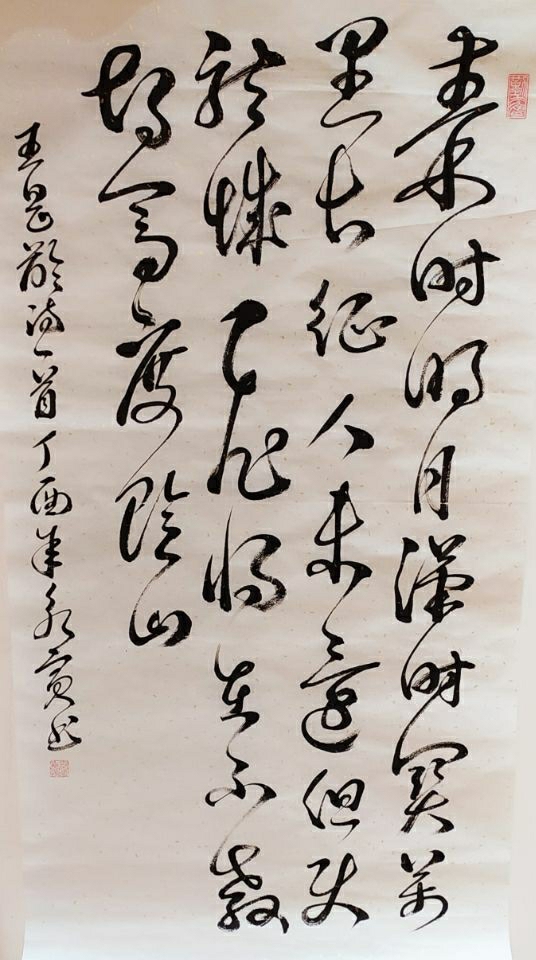 秦时明月汉时关万
里长征人未还但使
龙城飞将在不教
胡马度阴山
王昌龄诗一首丁酉年永实书